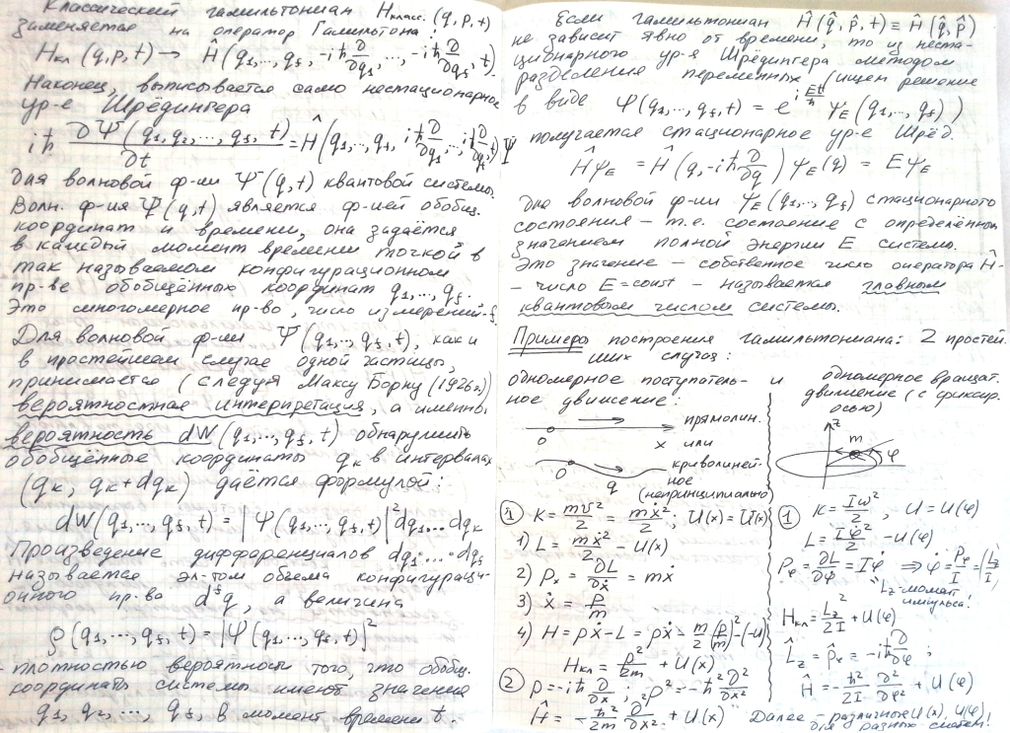 Классический гамильтониан Hкласс.(q,p,t)
заменяется на оператор Гамильтона:
Hкл(q,p,t) → Ĥ(q₁,...,qs, -iħ ∂/∂q₁, ..., -iħ ∂/∂qs, t).
Наконец, выписывается само нестационарное
ур-е Шрёдингера
iħ ∂Ψ(q₁,q₂,...,qs,t)/∂t = Ĥ(q₁,...,qs, iħ ∂/∂q₁,...,iħ ∂/∂qs, t)Ψ
для волновой ф-ии Ψ(q,t) квантовой системы.
Волн. ф-ия Ψ(q,t) является ф-ией обобщ.
координат и времени, она задаётся
в каждый момент времени точкой в
так называемом конфигурационном
пр-ве обобщённых координат q₁,...,qs.
Это многомерное пр-во, число измерений-s.
Для волновой ф-ии Ψ(q₁,...,qs,t), как и
в простейшем случае одной частицы,
принимается (следуя Максу Борну (1926г.))
вероятностная интерпретация, а именно:
вероятность dW(q₁,...,qs,t) обнаружить
обобщённые координаты qk в интервалах
(qk, qk+dqk) даётся формулой:
dW(q₁,...,qs,t) = |Ψ(q₁,...,qs,t)|²dq₁...dqk
Произведение дифференциалов dq₁·...·dqs
называется эл-том объема конфигураци-
онного пр-ва dˢq, а величина
ρ(q₁,...,qs,t) = |Ψ(q₁,...,qs,t)|²
- плотностью вероятности того, что обобщ.
координаты системы имеют значения
q₁, q₂,..., qs, в момент времени t.
Если гамильтониан Ĥ(q̂,p̂,t) ≡ Ĥ(q̂,p̂)
не зависит явно от времени, то из неста-
ционарного ур-я Шрёдингера методом
разделения переменных (ищем решение
в виде Ψ(q₁,...,qs,t) = e^(iEt/ħ) ψE(q₁,...,qs))
получается стационарное ур-е Шрёд.
ĤψE = Ĥ(q,-iħ ∂/∂q)ψE(q) = EψE
Для волновой ф-ии ψE(q₁,...,qs) стационарного
состояния – т.е. состояние с определённым
значением полной энергии E системы.
Это значение – собственное число оператора Ĥ-
- число E=const – называется главным
квантовым числом системы.
Примеры построения гамильтониана: 2 простей
ших случая:
одномерное поступатель-
ное движение:
и
прямолин.
0 x или
криволиней-
0 q ное
(непринципиально)
① K = mv²/2 = mẋ²/2; U(x) = U(x)
1) L = mẋ²/2 - U(x)
2) Px = ∂L/∂ẋ = mẋ
3) ẋ = p/m
4) H = pẋ-L = pẋ - m/2 (p/m)² -(-U)
Hкл = p²/2m + U(x)
② p̂=-iħ ∂/∂x; p̂² = -ħ² ∂²/∂x²
Ĥ = -ħ²/2m ∂²/∂x² + U(x)
одномерное вращат.
движение (с фиксир.
осью)
z
m
φ
① K = Iω²/2, U = U(φ)
L = Iφ̇²/2 - U(φ)
Pφ = ∂L/∂φ̇ = Iφ̇ ⇒ φ̇ = Pφ/I = (Lz/I)
"Lz-момент
импульса!
Hкл = Lz²/2I + U(φ)
L̂z = p̂φ = -iħ ∂/∂φ;
Ĥ = -ħ²/2I ∂²/∂φ² + U(φ)
Далее – различные U(x), U(φ)
для разных систем!